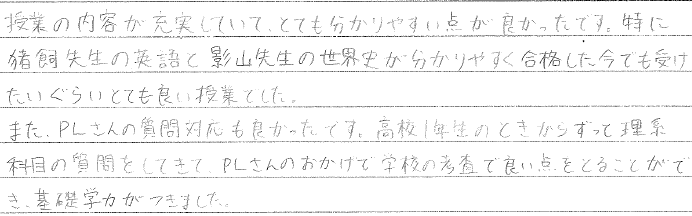 授業の内容が充実していて、とても分かりやすい点が良かったです。特に
猪飼先生の英語と影山先生の世界史が分かりやすく合格した今でも受け
たいぐらいとても良い授業でした。
また、PLさんの質問対応も良かったです。高校1年生のときからずっと理系
科目の質問をしてきて、PLさんのおかげで学校の考査で良い点をとることがで
き、基礎学力がつきました。